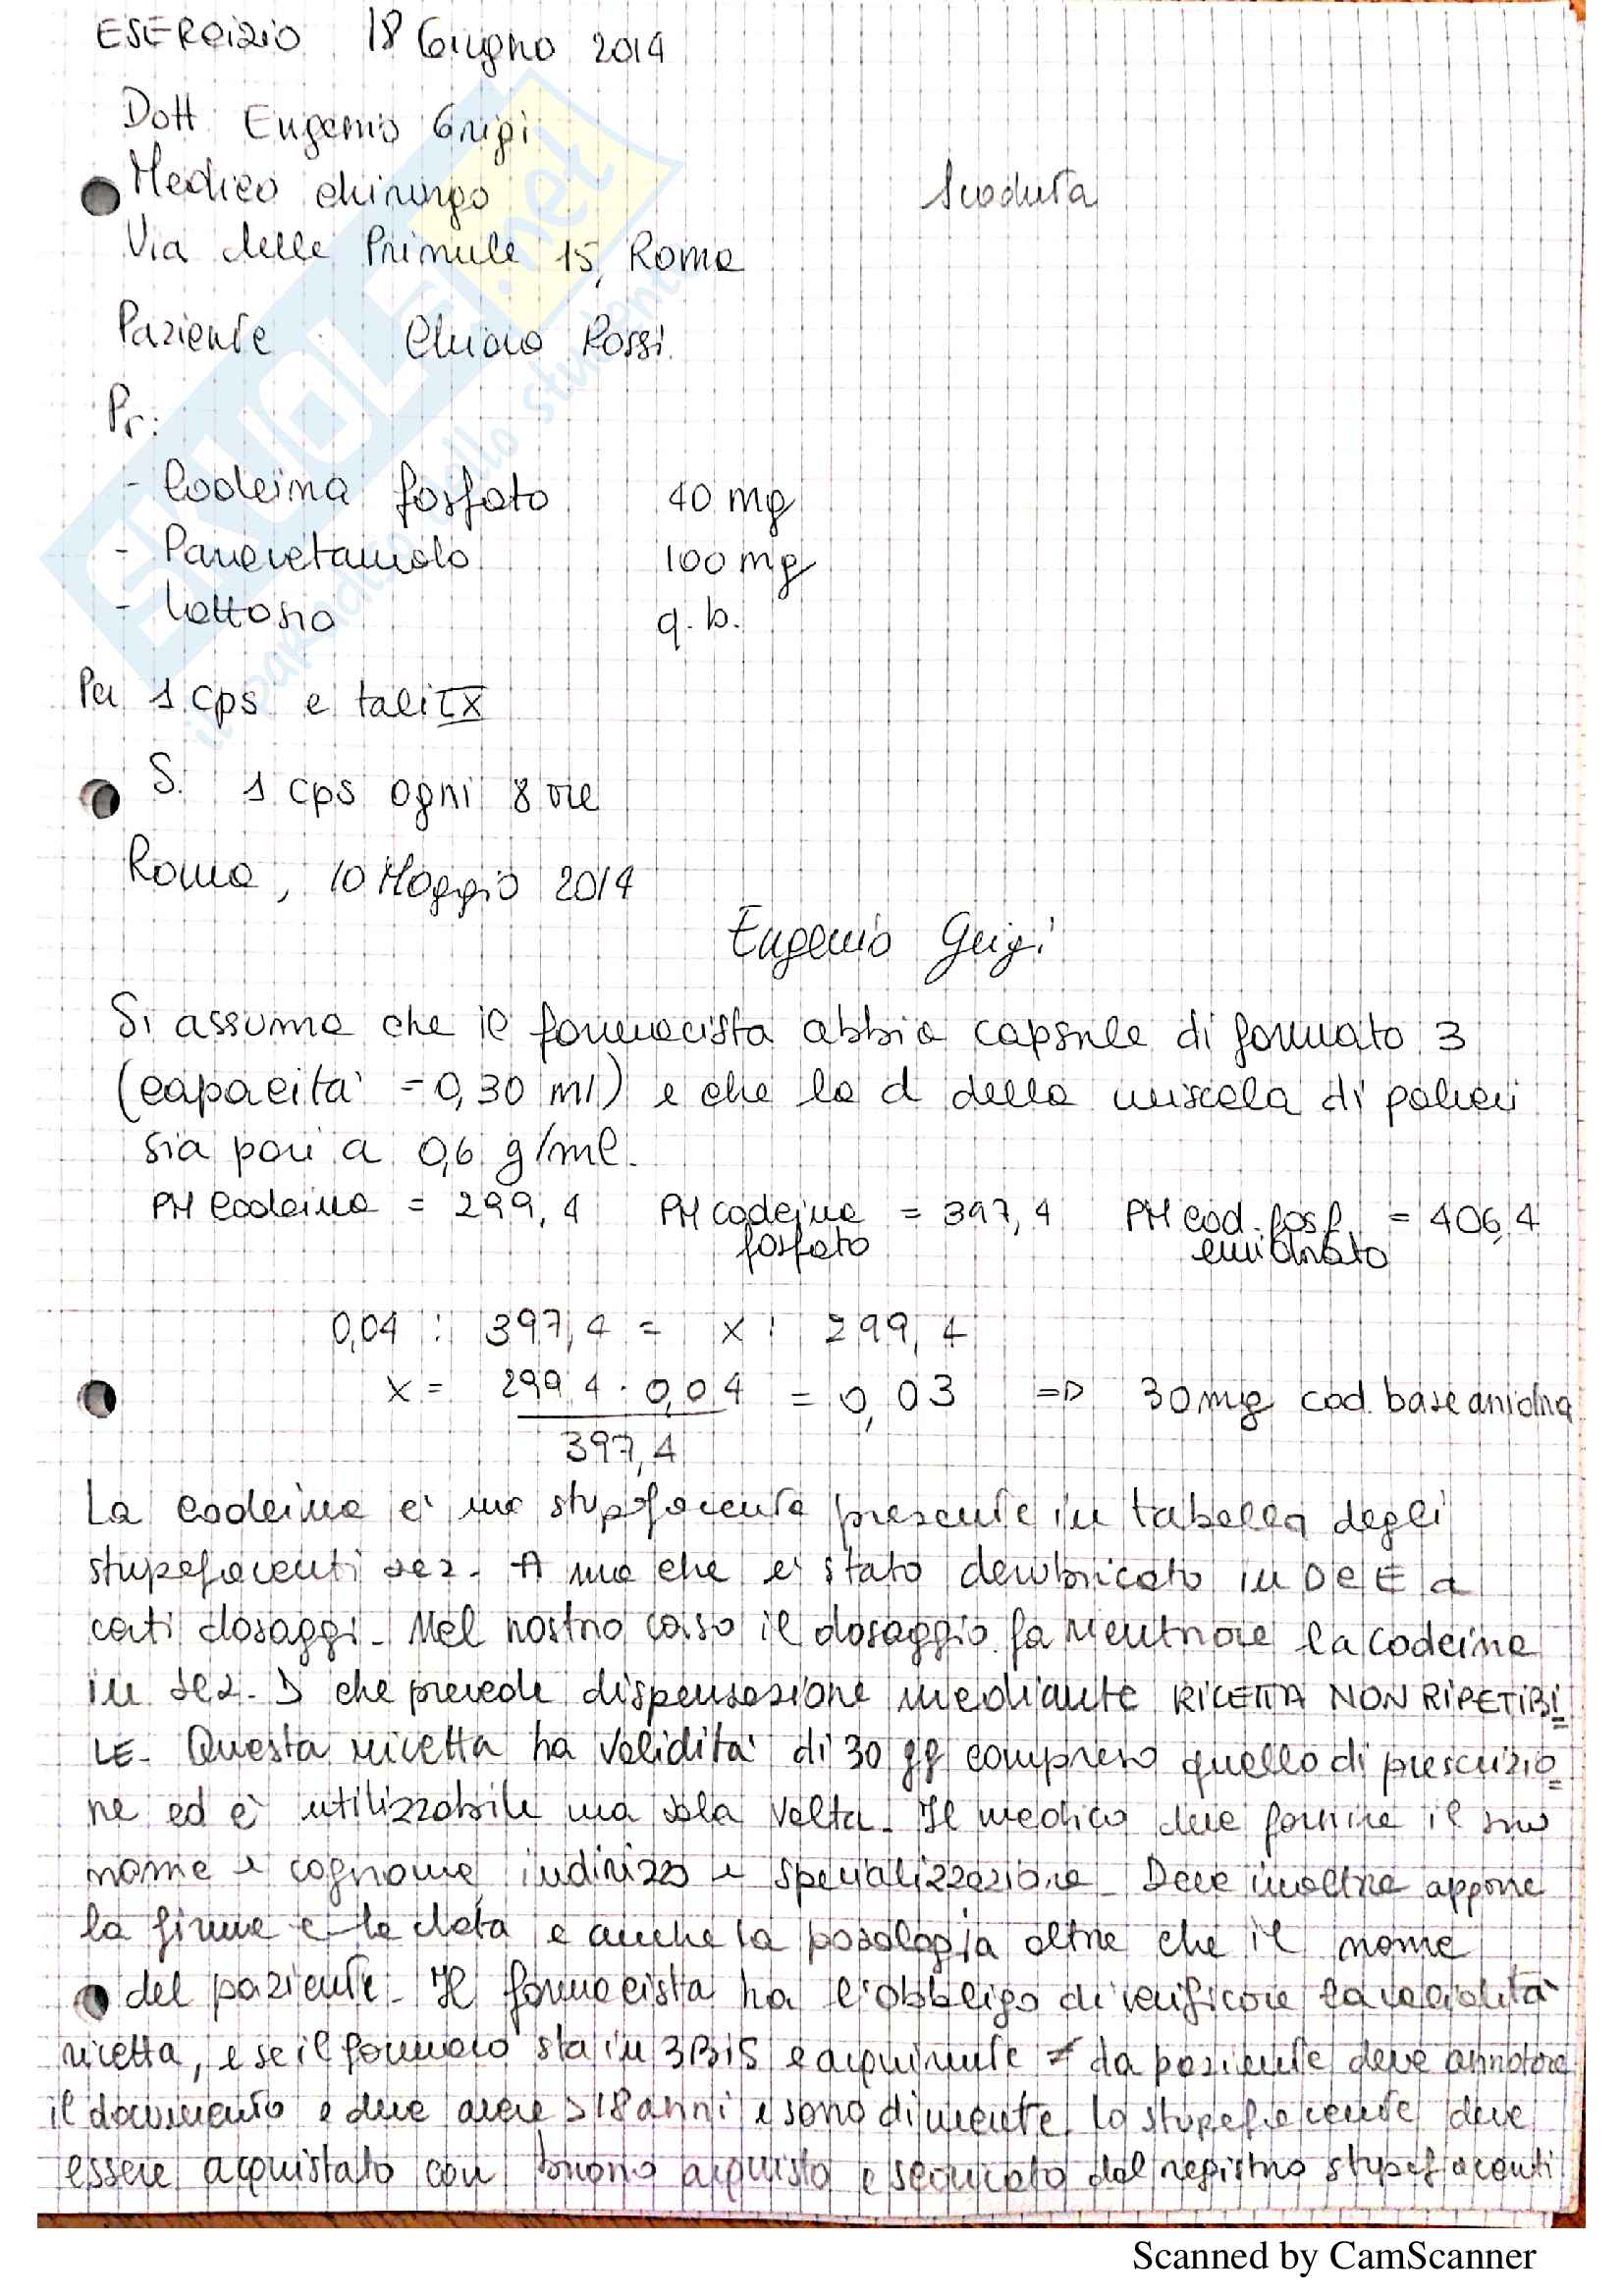 ESERCIZIO 18 Giugno 2014
Dott. Eugenio Grigi
Medico chirurgo
Scaduta
Via delle Primule 15, Roma
Paziente Chiara Rossi.
Pr:
- Codeina fosfato 40 mg
- Paracetamolo 100 mg
- Lattosio q.b.
Per 1 cps e tali IX
S. 1 cps ogni 8 ore
Roma, 10 Maggio 2014
Eugenio Grigi
Si assuma che il farmacista abbia capsule di formato 3
(capacità = 0,30 ml) e che la d della miscela di polveri
sia pari a 0,6 g/ml.
PM Codeina = 299,4 PM codeina fosfato = 397,4 PM cod. fosf. emiidrato = 406,4
0,04 : 397,4 = x : 299,4
x = 299,4 · 0,04 = 0,03 => 30mg cod. base anidra
397,4
La codeina è uno stupefacente presente in tabella degli
stupefacenti sez. A ma che è stato derubricato in D e E a
certi dosaggi. Nel nostro caso il dosaggio fa rientrare la codeina
in sez. D che prevede dispensazione mediante RICETTA NON RIPETIBI=
LE. Questa ricetta ha validità di 30 gg compreso quello di prescrizio=
ne ed è utilizzabile una sola volta. Il medico deve fornire il suo
nome e cognome, indirizzo e specializzazione. Deve inoltre apporre
la firma e la data e anche la posologia oltre che il nome
del paziente. Il farmacista ha l'obbligo di verificare la validità
ricetta, e se il farmaco sta in 3BIS e acquirente ≠ da paziente deve annotare
il documento e deve avere >18 anni e sano di mente. Lo stupefacente deve
essere acquistato con buono acquisto e scaricato dal registro stupefacenti
SKUOLA.net
il paradiso dello studente
Scanned by CamScanner